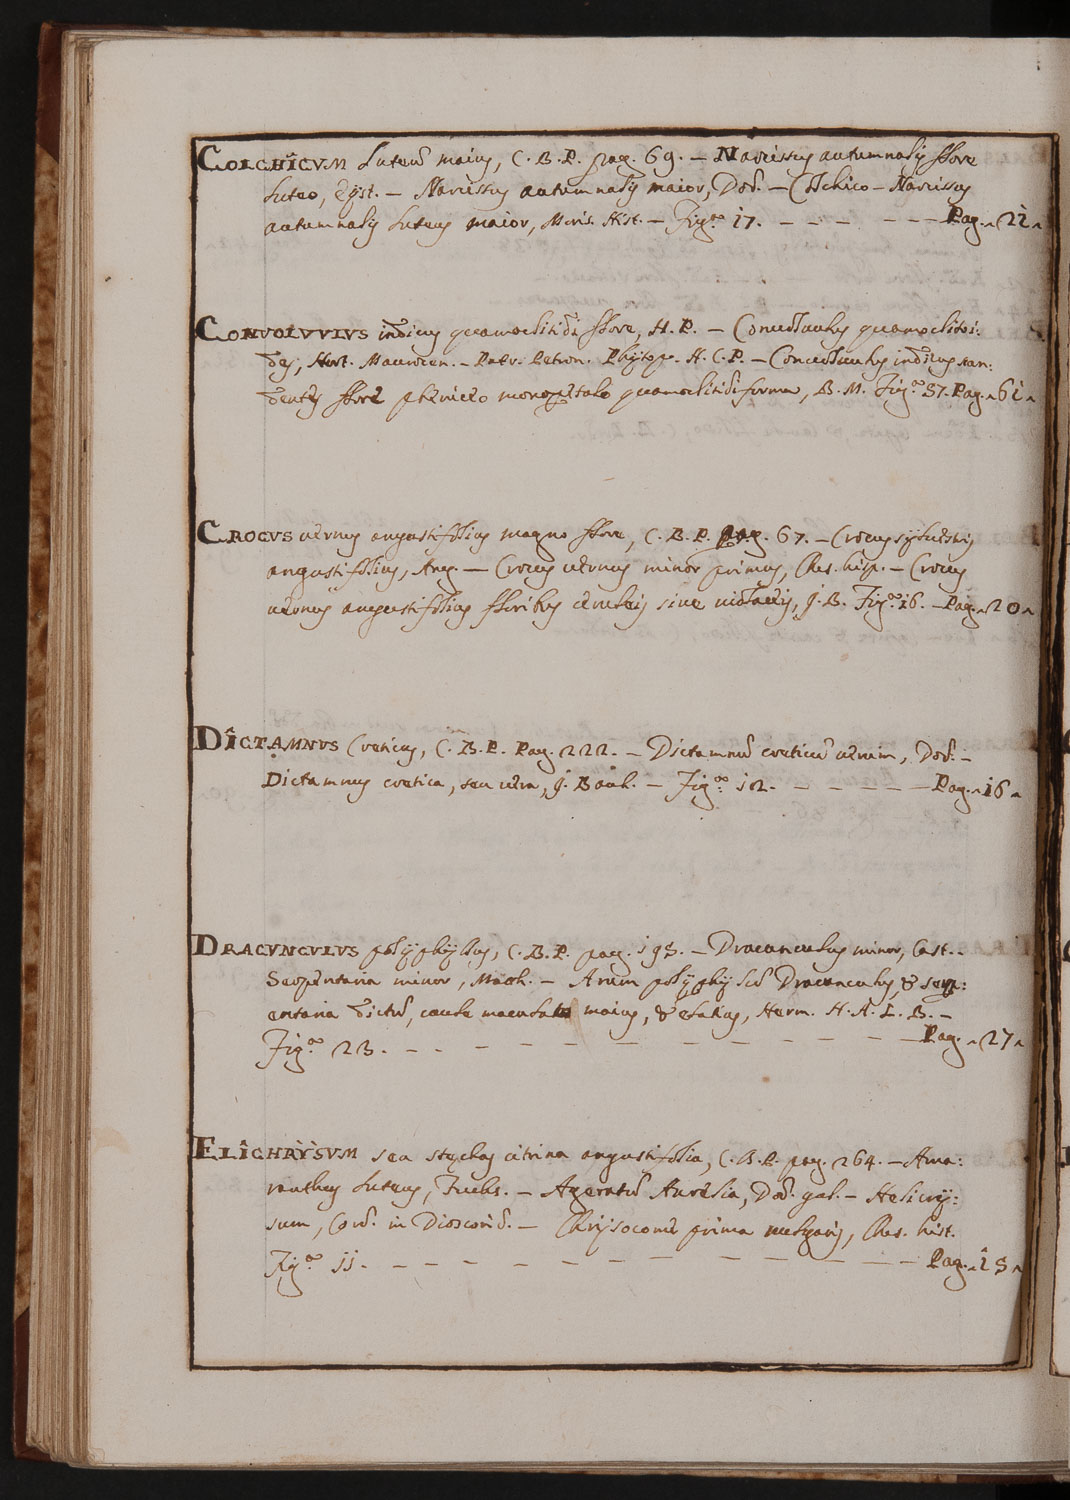 COLCHICVM Luteũ maius, C. B. P. pag. 69. – Narcissus autumnalis flore
Luteo, Eyst. – Narcissus autumnalis maior, Dod. – Colchico – Narcissus
autumnalis Luteus maior, Moris. Hist. – Fig.ª 17. – – – – – – Pag. 21
CONVOLVVLVS indicus quamoclitidis flore, H. P. – Convolvulus quamoclitoi:
des, Hort. Maurocen. – Petr. Petron. Phytopp. H. C. P. – Convolvulus indicus
flore phœniceo monopetalo quamoclitidis forma, B. M. Fig.ª 57. Pag. 61
CROCVS vernus angustifolius magno flore, C. B. P. pag. 67. – Crocus sylvestris
angustifolius, Ang. – Crocus vernus minor primus, Clus. hisp. – Crocus
vernus angustifolius floribus ceruleis sive violaceis, J. B. Fig.ª 16. – Pag. 20
DICTAMNVS Creticus, C. B. P. Pag. 222. – Dictamnũ creticũ verum, Dod. –
Dictamnus cretica, seu vera, J. Bauh. – Fig.ª 12. – – – – – – Pag. 16
DRACVNCVLVS polyphyllus, C. B. P. pag. 195. – Dracunculus minor, Cast. –
Serpentaria minor, Math. – Arum polyphyllũ Dracunculus, & serp:
entaria dictũ, caule maculato maius, & elatius, Herm. H. A. L. B. –
Fig.ª 23. – – – – – – – – – – – – Pag. 27
ELICHRYSVM seu stœchas citrina angustifolia, C. B. P. pag. 264. – Ama:
ranthus Luteus, Fuchs. – Ageratũ Aurelia, Dod. gal. – Helicry:
sum, Cord. in Dioscorid. – Chrysocome prima vulgaris, Clus. hist.
Fig.ª 11. – – – – – – – – – – – – Pag. 15